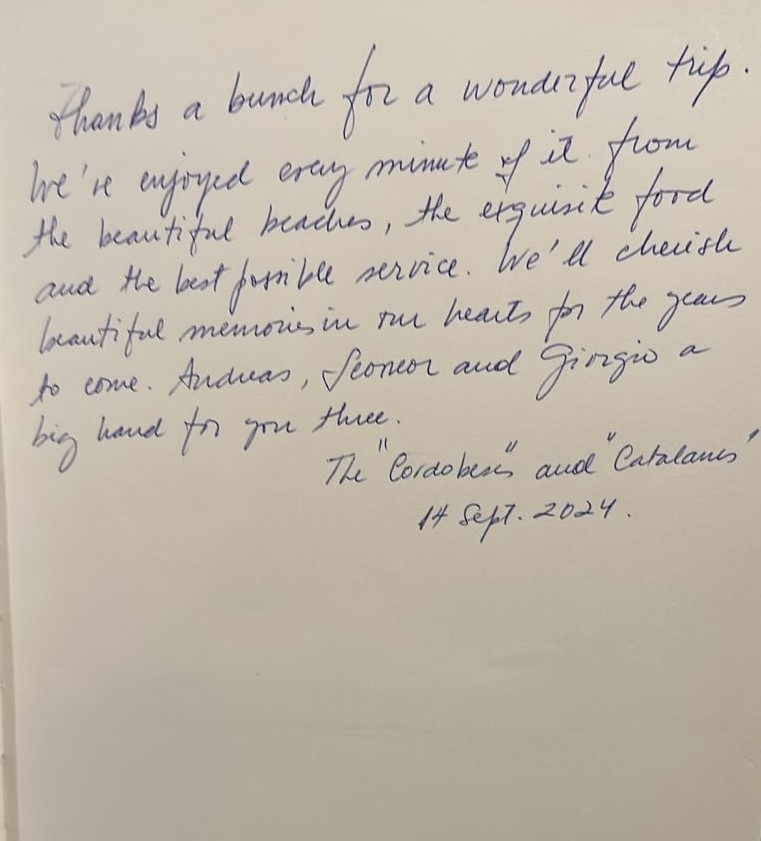 Thanks a bunch for a wonderful trip.
We've enjoyed every minute of it. from
the beautiful beaches, the exquisite food
and the best possible service. We'll cherish
beautiful memories in our hearts for the years
to come. Andreas, and Giorgio a
big hand for you three.
The "Cordobeses" and "Catalanes"
14 Sept. 2024.